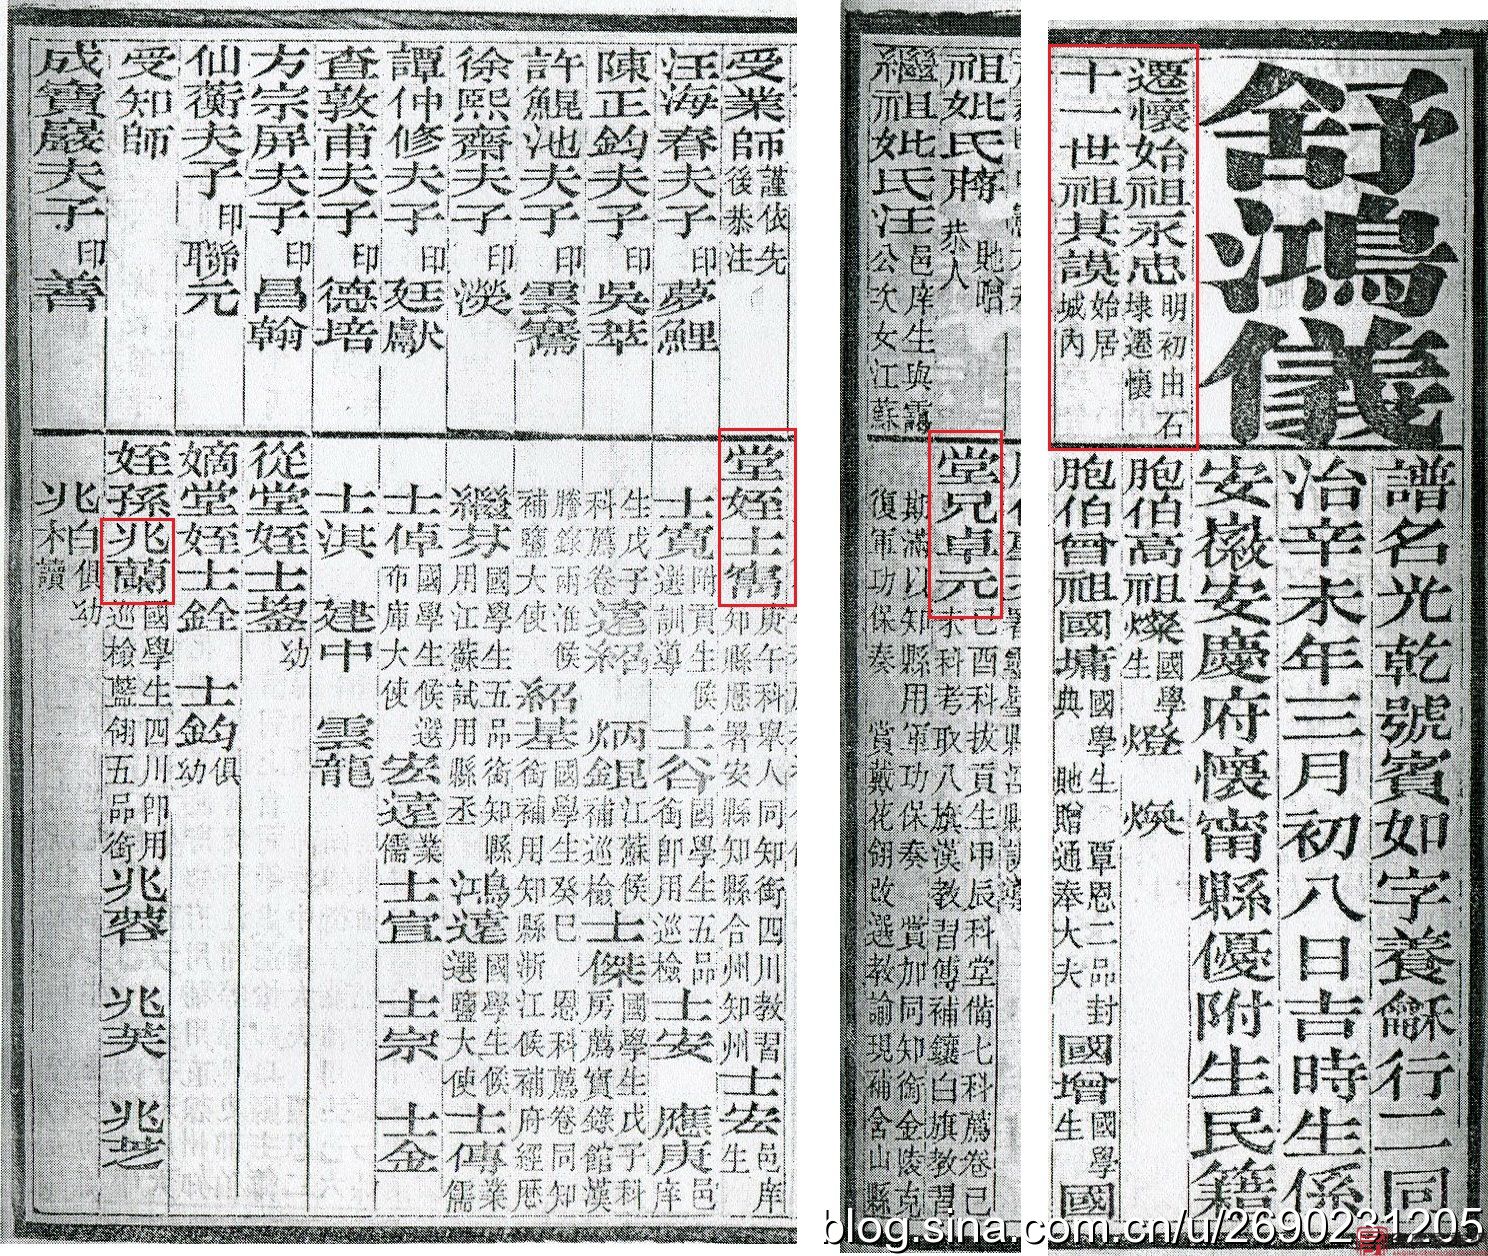 舒鴻儀
遷懷始祖永忠 明初由石埭遷懷
十一世祖其謨 始居城內
譜名光乾號賓如字養龢行二同
治辛未年三月初八日吉時生係
安徽安慶府懷甯縣優附生民籍
胞伯高祖燦 國學生 燈 煥
胞伯曾祖國墉 國學生 覃恩二品封典 貤贈通奉大夫 國增 國學生 國
祖妣氏甯 貤贈恭人
繼祖妣氏汪 邑庠生與霈公次女江蘇
堂兄卓元 己酉科拔貢生甲辰科堂備七科薦卷已未科考取八旗漢教習傅補鑲白旗教習
期滿以知縣用軍功保奏 賞加同知銜金陵克復軍功保奏 賞戴花翎改選教諭現補含山縣
受業師 謹依先後恭注
汪海春夫子 印夢鯉
陳正鈞夫子 印吳萃
許鯤池夫子 印雲騫
徐熙齋夫子 印濙
譚仲修夫子 印廷獻
查敦甫夫子 印德培
方宗屏夫子 印昌翰
仙蘅夫子 印聯元
受知師
成寶巖夫子 印善
堂姪士寯 庚午科舉人同知銜四川教習知縣歷署安縣知縣合州知州 士宏 邑庠生
士寬 附貢生候選訓導 士谷 國學生五品銜即用巡檢 士安 應庚 邑庠
生戊子科薦卷 達 炳焜 江蘇候補巡檢 士傑 國學生戊子科房薦實錄館漢
謄錄兩淮候補鹽大使 紹基 國學生癸巳恩科薦卷同知銜補用知縣浙江候補府經歷
繼芬 國學生五品銜知縣用江蘇試用縣丞 鴻達 國學生候選鹽大使 士傳 業儒
士倬 國學生候選布庫大使 宏遠 業儒 士宣 士崇 士金
士淇 建中 雲龍
從堂姪士鋆 幼
嫡堂姪士銓 士鈞 俱幼
姪孫兆蘭 國學生四川即用巡檢藍翎五品銜 兆蓉 兆芙 兆芝
兆柏 俱幼讀
blog.sina.com.cn/u/2690231205